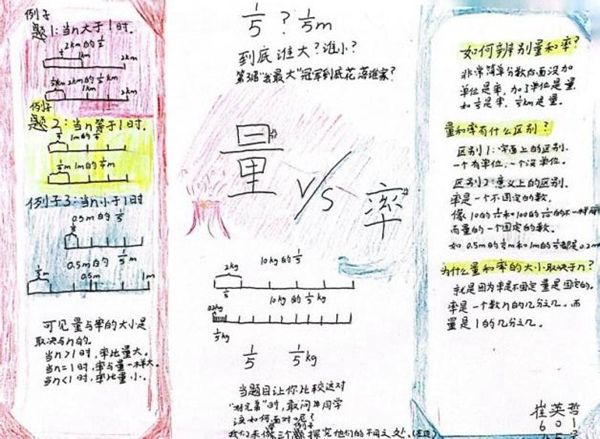 例子
题1:当n大于1时.
2km的1/5
2km
1km
2km
例子
题2:当n等于1时.
1m的1/5
1m的1/5m
例子3:当n小于1时
0.5m的1/5
0.5m的1/5m
0.5m
1m
可见量与率的大小是
取决与n的.
当n>1时,率比量大。
当n=1时,率与量一样大
当n<1时,率比量小.
1/5?1/5m
到底谁大?谁小?
冠军到底花落谁家?
量
V/S
率
2kg
10kg的1/5
1/5
10kg的1/5kg
1/5 1/5kg
当题目让你比较这对
时,敢问同学
该如何面对呢?
如何辨别量和率?
非常简单分数后面没加
单位是率,加了单位是量.
如1/5是率,1/5km是量.
量和率有什么区别?
区别1:字面上的区别.
一个有单位,一个没单位。
区别2:意义上的区别.
率是一个不固定的数.
而量的一个固定的数.
如0.5m的1/5m和1m的1/5m都是0.2m
为什么量和率的大小取决于n?
就是因为率是不固定量是固定的.
率是一个数n的几分之几。而
量是1的几分之几。
崔英哲
601